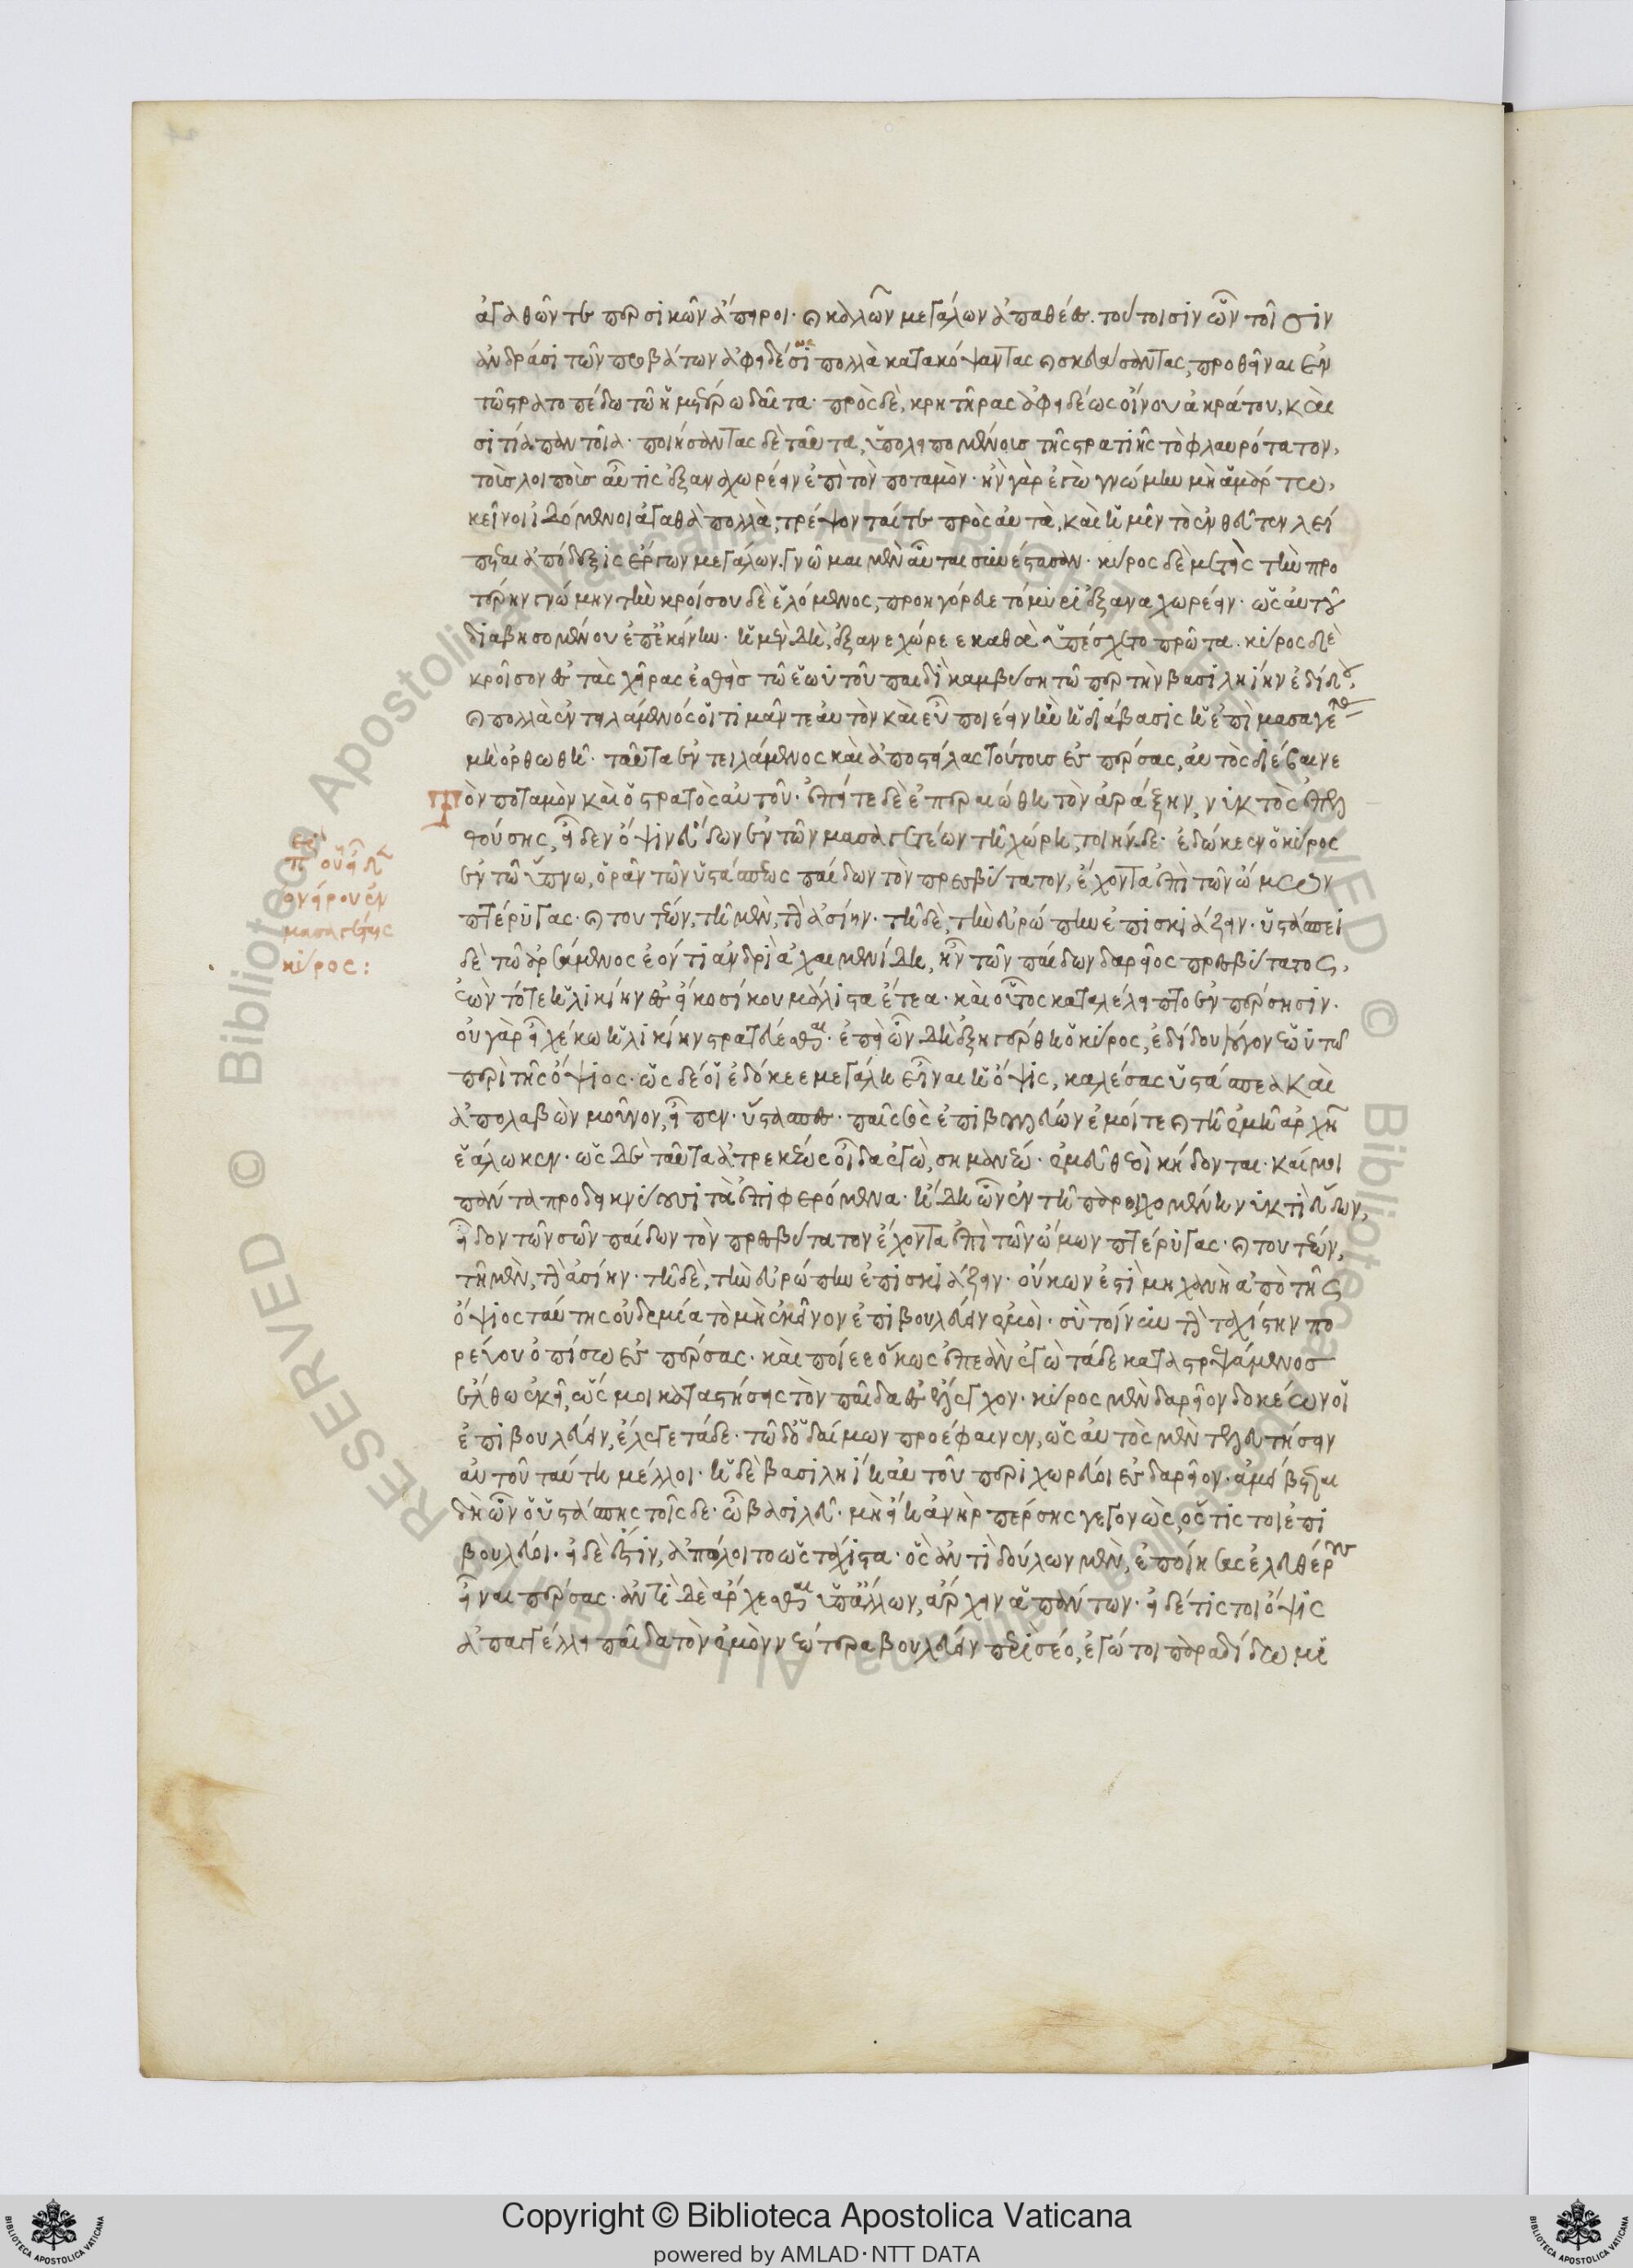 ἀγαθῶν τε περσικῶν ἄπειροι· καὶ καλῶν μεγάλων ἀπαθέες. τούτοισιν ὦν τοῖσιν
ἀνδράσι τῶν προβάτων ἀφειδέως πολλὰ κατακόψαντας καὶ σκευάσαντας, προθεῖναι ἐν
τῶ στρατοπέδω τῶ ἡμετέρω δαῖτα· πρὸς δὲ, κρητῆρας ἀφειδέως οἴνου ἀκράτου, καὶ
σιτία παντοῖα· ποιήσαντας δὲ ταῦτα, ὑπολειπομένοισ τῆς στρατιῆς τὸ φλαυρότατον,
τοὺσ λοιποὺσ αὖτις ἐξαναχωρέειν ἐπὶ τὸν ποταμὸν· ἢν γὰρ ἐγὼ γνώμην μὴ ἁμάρτω,
κεῖνοι ἰδόμενοι ἀγαθὰ πολλὰ, τρέψονταί τε πρὸς αὐτὰ, καὶ ἡμῖν τὸ ἐνθεῦτεν λεί
πεται ἀπόδεξις ἔργων μεγάλων. γνῶμαι μὲν αὗται συνέστασαν· κύρος δὲ μετεὶς τὴν προ
τέρην γνώμην τὴν κροίσου δὲ ἑλόμενος, προηγόρευε τόμύρι ἐξαναχωρέειν· ὡς αὐτοῦ
διαβησομένου ἐπ' ἐκείνην· ἡ μὲν δὴ, ἐξανεχώρεε καθὰ ὑπέσχετο πρῶτα. κύρος δὲ
κροῖσον ἐς τὰς χεῖρας ἐσθεὶσ τῶ ἑωυτοῦ παιδὶ καμβύση τῶ περ τὴν βασιληίην ἐδίδου,
καὶ πολλὰ ἐντειλάμενός οἱ τιμᾶν τε αὐτὸν καὶ εὖ ποιέειν ἢν ἡ διάβασις ἡ ἐπὶ μασαγέτας
μὴ ὀρθωθῆ· ταῦτα ἐντειλάμενος καὶ ἀποστείλας τούτουσ ἐς πέρσας, αὐτὸς διέβαινε
τὸν ποταμὸν καὶ ὁ στρατὸς αὐτοῦ· ἐπείτε δὲ ἐπεραιώθη τὸν ἀράξην, νυκτὸς ἐπελ
θούσης, εἶδεν ὄψιν εὕδων ἐν τῶν μασαγετέων τῆ χώρη, τοιήνδε· ἐδόκεεν ὁ κύρος
ἐν τῶ ὕπνω, ὁρᾶν τῶν ὑστάσπεος παίδων τὸν πρεσβύτατον, ἔχοντα ἐπὶ τῶν ὤμων
πτέρυγας· καὶ τουτέων, τῆ μὲν, τὴν ἀσίην· τῆ δὲ, τὴν εὐρώπην ἐπισκιάζειν· ὑστάσπεϊ
δὲ τῶ ἀρσάμενος ἐόντι ἀνδρὶ ἀχαιμενίδη, ἦν τῶν παίδων δαρεῖος πρεσβύτατος,
ἐὼν τότε ἡλικίην ἐς εἴκοσί κου μάλιστα ἔτεα· καὶ οὗτος καταλέλειπτο ἐν πέρσησιν·
οὐ γὰρ εἶχέ κω ἡλικίην στρατεύεσθαι· ἐπεὶ ὦν δὴ ἐξηγέρθη ὁ κύρος, ἐδίδου λόγον ἑωυτῶ
περὶ τῆς ὄψιος· ὡς δέ οἱ ἐδόκεε μεγάλη εἶναι ἡ ὄψις, καλέσας ὑστάσπεα καὶ
ἀπολαβὼν μοῦνον, εἶπεν· ὕστασπες· παῖς σὸς ἐπιβουλεύων ἐμοί τε καὶ τῆ ἐμῆ ἀρχῆ
ἑάλωκεν· ὡς δὲ ταῦτα ἀτρεκέως οἶδα ἐγὼ, σημανέω· ἐμεῦ θεοὶ κήδονται· καί μοι
πάντα προδεικνύουσι τὰ ἐπιφερόμενα· ἤδη ὦν ἐν τῆ παροιχομένη νυκτὶ εὕδων,
εἶδον τῶν σῶν παίδων τὸν πρεσβύτατον ἔχοντα ἐπὶ τῶν ὤμων πτέρυγας· καὶ τουτέων,
τῆ μὲν, τὴν ἀσίην· τῆ δὲ, τὴν εὐρώπην ἐπισκιάζειν· οὔκων ἐστὶ μηχανὴ ἀπὸ τῆς
ὄψιος ταύτης οὐδεμία τὸ μὴ ἐκεῖνον ἐπιβουλεύειν ἐμοὶ· σὺ τοίνυν τὴν ταχίστην πο
ρεύου ὀπίσω ἐς πέρσας· καὶ ποίεε ὅκως ἐπεὰν ἐγὼ τάδε καταστρεψάμενοσ
ἔλθω ἐκεῖ, ὥς μοι καταστήσης τὸν παῖδα ἐς ἔλεγχον· κύρος μὲν δαρεῖον δοκέων οἱ
ἐπιβουλεύειν, ἔλεγε τάδε· τῶ δὲ ὁ δαίμων προέφαινεν, ὡς αὐτὸς μὲν τελευτήσειν
αὐτοῦ ταύτη μέλλοι· ἡ δὲ βασιληίη αὐτοῦ περιχωρέοι ἐς δαρεῖον· ἀμείβεται
δὴ ὦν ὁ ὑστάσπης τοῖσδε· ὦ βασιλεῦ· μὴ εἴη ἀνὴρ πέρσης γεγονὼς, ὅστις τοι ἐπι
βουλεύοι· εἰ δὲ ἔστιν, ἀπόλοιτο ὡς τάχιστα· ὃς ἀντὶ δούλων μὲν, ἐποίησας ἐλευθέρους
εἶναι πέρσας· ἀντὶ δὲ ἄρχεσθαι ὑπ' ἄλλων, ἄρχειν ἁπάντων· εἰ δέ τίς τοι ὄψις
ἀπαγγέλλει παῖδα τὸν ἐμὸν νεώτερα βουλεύειν περὶ σέο, ἐγώ τοι παραδίδωμι
ὄνειρον ἐν
μασαγέταις
κύρος:
Copyright © Biblioteca Apostolica Vaticana
powered by AMLAD·NTT DATA